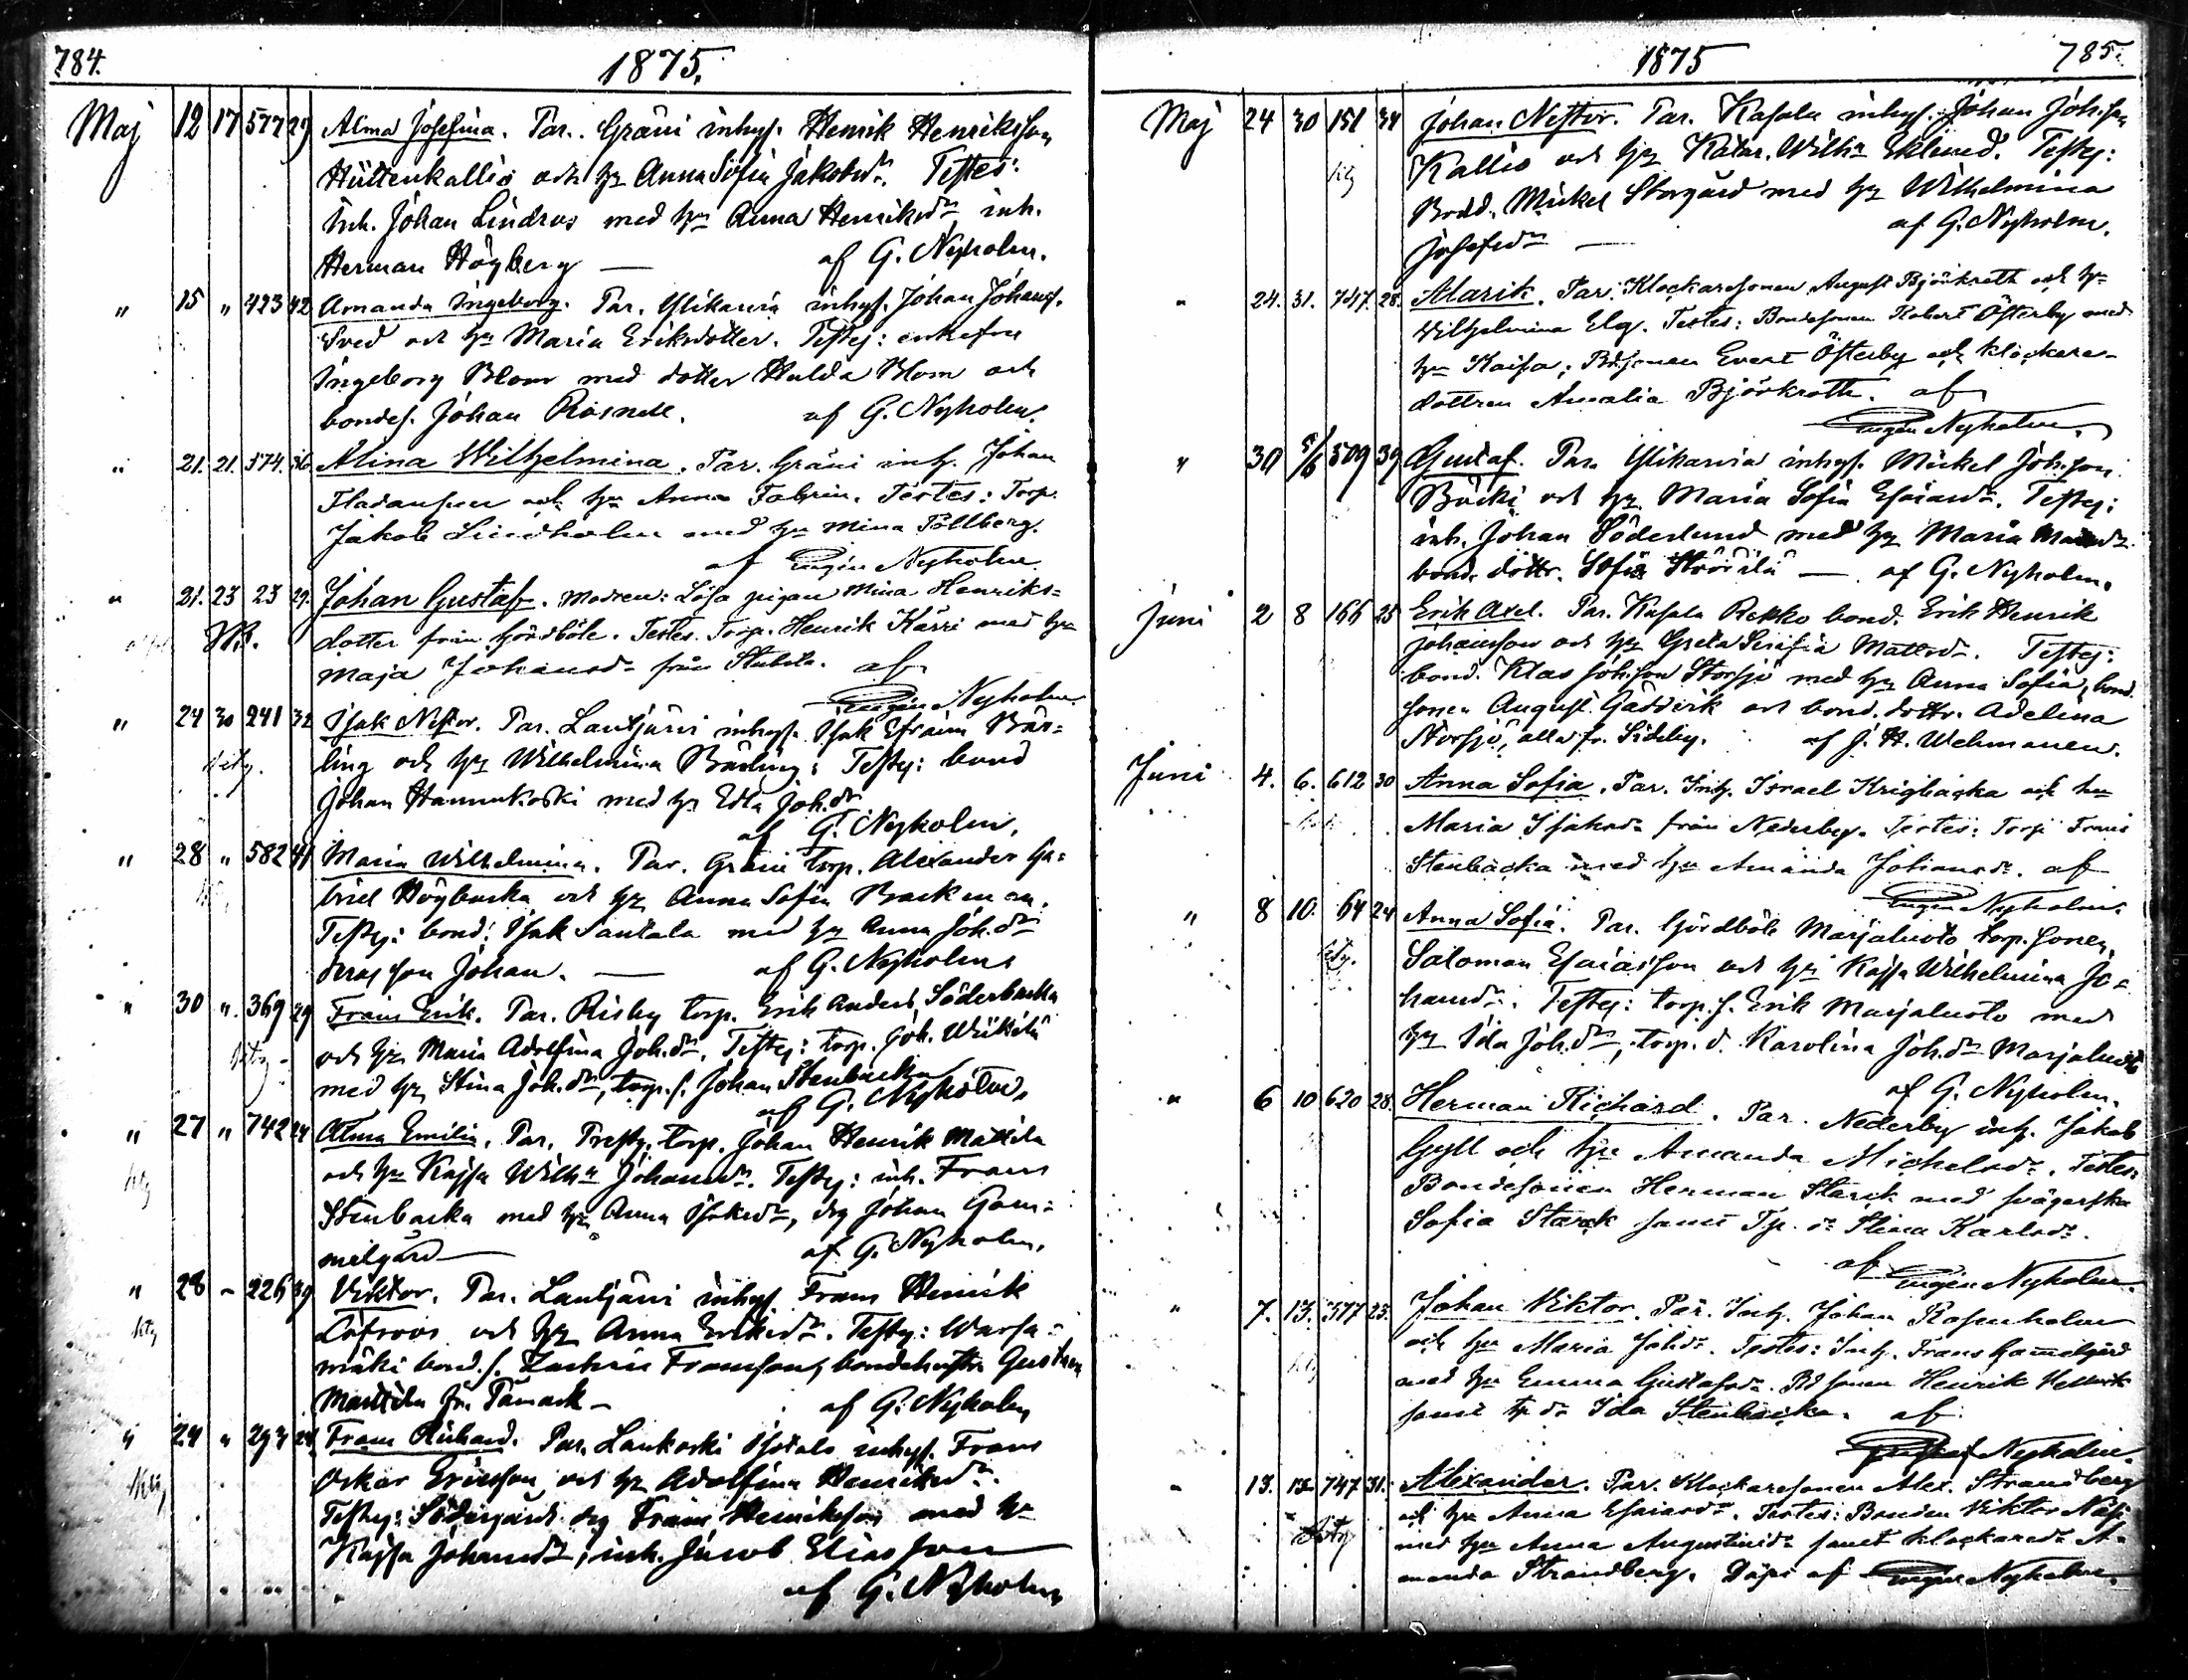 784.
1875.
Maj 12 17 577 29 Alma Josefina. Par. Gräni inhys. Henrik Henriksson
Hüttenkallio och hu Anna Sofia Jakobsdr. Testes:
Inh. Johan Lindroos med hu Anna Henriksdr inh.
Herman Högberg — af G. Nyholm.
" 15 " 423 42 Amanda Ingeborg. Par. Ylikarvia inhys. Johan Johans.
Sved och hu Maria Eriksdotter. Testes: enkefru
Ingeborg Blom med dotter Hulda Blom och
bondes. Johan Rosnell. af G. Nyholm.
" 21. 21. 574. 36. Alina Wilhelmina. Par. Gräni inh. Johan
och hu Anna Fabrin. Testes: Torp.
Jakob Lindholm med hu Mina Pållberg.
af Nyholm.
" 21. 23 23 29. Johan Gustaf. Modren: Lösa pigan Mina Henriks=
dotter från Hördböle. Testes. Torp. Henrik Kärri med hu
Maja Johansdr från af
Nyholm.
" 24 30 241 32 Isak Nestor. Par. Lautjärvi inhys. Isak Efraim Bär=
ling och hu Wilhelmina Bärling; Testes: bond
Johan Hannukoski med hu Edla Joh.dr
af G. Nyholm.
" 28 " 582 41 Maria Wilhelmina. Par. Gräni torp. Alexander Ga=
briel Högbacka och hu Anna Sofia Backman.
Testes: bond. Isak Santala med hu Anna Joh.dr
deras son Johan. — af G. Nyholm
" 30 " 369 29 Frans Erik. Par. Risby torp. Erik Anders. Söderbacka
och hu Maria Adolfina Joh.dr. Testes: torp. Joh. Wiikilä
med hu Stina Joh.dr, torp.s. Johan Stenbacka
af G. Nyholm.
" 27 " 742 24 Alma Emilia. Par. torp. Johan Henrik Mattila
och hu Kajsa Wilh. Johansdr. Testes: inh. Frans
Stenbacka med hu Anna Isaksdr, dg Johan Gam=
melgård — af G. Nyholm.
" 28 – 226 39 Viktor. Par. Lautjärvi inhys. Frans Henrik
Löfroos och hu Anna Eriksdr. Testes: Warsa=
mäki bond.s. Fransson, Gustava
Marttila fr. Påmark – af G. Nyholm
" 24 " 293 Frans Richard. Par. Lankoski Isotalo inhys. Frans
Oskar Ericsson och hu Adolfina Henriksdr.
Testes: Södergård dg Frans Henriksson med hu
Kajsa Johansdr, inh. Jacob Eliasson
af G. Nyholm
1875
785.
Maj 24 30 151 34 Johan Nestor. Par. Kasala inhys. Johan Joh.son
Kallio och hu Katar. Wilh. Eklund. Testes:
Bond. Mickel Storgård med hu Wilhelmina
Josefsdr — af G. Nyholm.
" 24. 31. 747. 28. Alarik. Par. Klockaresonen August Björkroth och hu
Wilhelmina Elg. Testes: Bondesonen Robert Österby med
hu Kaisa; Bdsonen Evert Österby och klockare-
dottren Amalia Björkroth. af
Nyholm.
" 30 5/6 509 39 Gustaf. Par. Ylikarvia inhys. Mickel Joh.son
Bäcki och hu Maria Sofia Esaiasdr. Testes:
inh. Johan Söderlund med hu Maria
bond. dottr. Sofia — af G. Nyholm.
Juni 2 8 166 25 Erik Axel. Par. Kasala Rekko bond. Erik Henrik
Johansson och hu Greta Serafia Mattsdr. Testes:
bond. Klas Joh.son Storsjö med hu Anna Sofia, bond.
sonen August Gäddvik och bond. dottr. Adelina
Storsjö, alla fr. Sideby. af J. H. Wehmanen.
Juni 4. 6. 612 30 Anna Sofia. Par. Inh. Israel Krigbacka och hu
Maria Isaksdr från Nederby. Testes: Torp Frans
Stenbacka med hu Amanda Johansdr. af
Nyholm.
" 8 10. 64 24 Anna Sofia. Par. Hjördböle Marjaluoto torp. sonen
Saloman Esaiasson och hu Kajsa Wilhelmina Jo=
hansdr. Testes: torp. s. Erik Marjaluoto med
hu Ida Joh.dr, torp. d. Karolina Joh.dr Marjaluoto
af G. Nyholm.
" 6 10 620 28. Herman Richard. Par. Nederby inh. Jakob
Gyll och hu Amanda Michelsdr. Testes:
Bondesonen Herman Starck med svägerska
Sofia Starck samt Tp. dr Stina Karlsdr.
af Nyholm.
" 7. 13. 577 23. Johan Viktor. Par. Inh. Johan Rosenholm
och hu Maria Johdr. Testes: Inh. Frans Gammelgård
med hu Emma Gustafsdr. Bdsonen Henrik
samt tp dr Ida Stenbacka. af
Nyholm.
" 13. 13 747 31. Alexander. Par. Klockaresonen Alex. Strandberg
och hu Anna Esaiasdr. Testes: Bonden Viktor Näsi
med hu Anna Augustinidr samt klockaredr A-
manda Strandberg. Döpt af Nyholm.